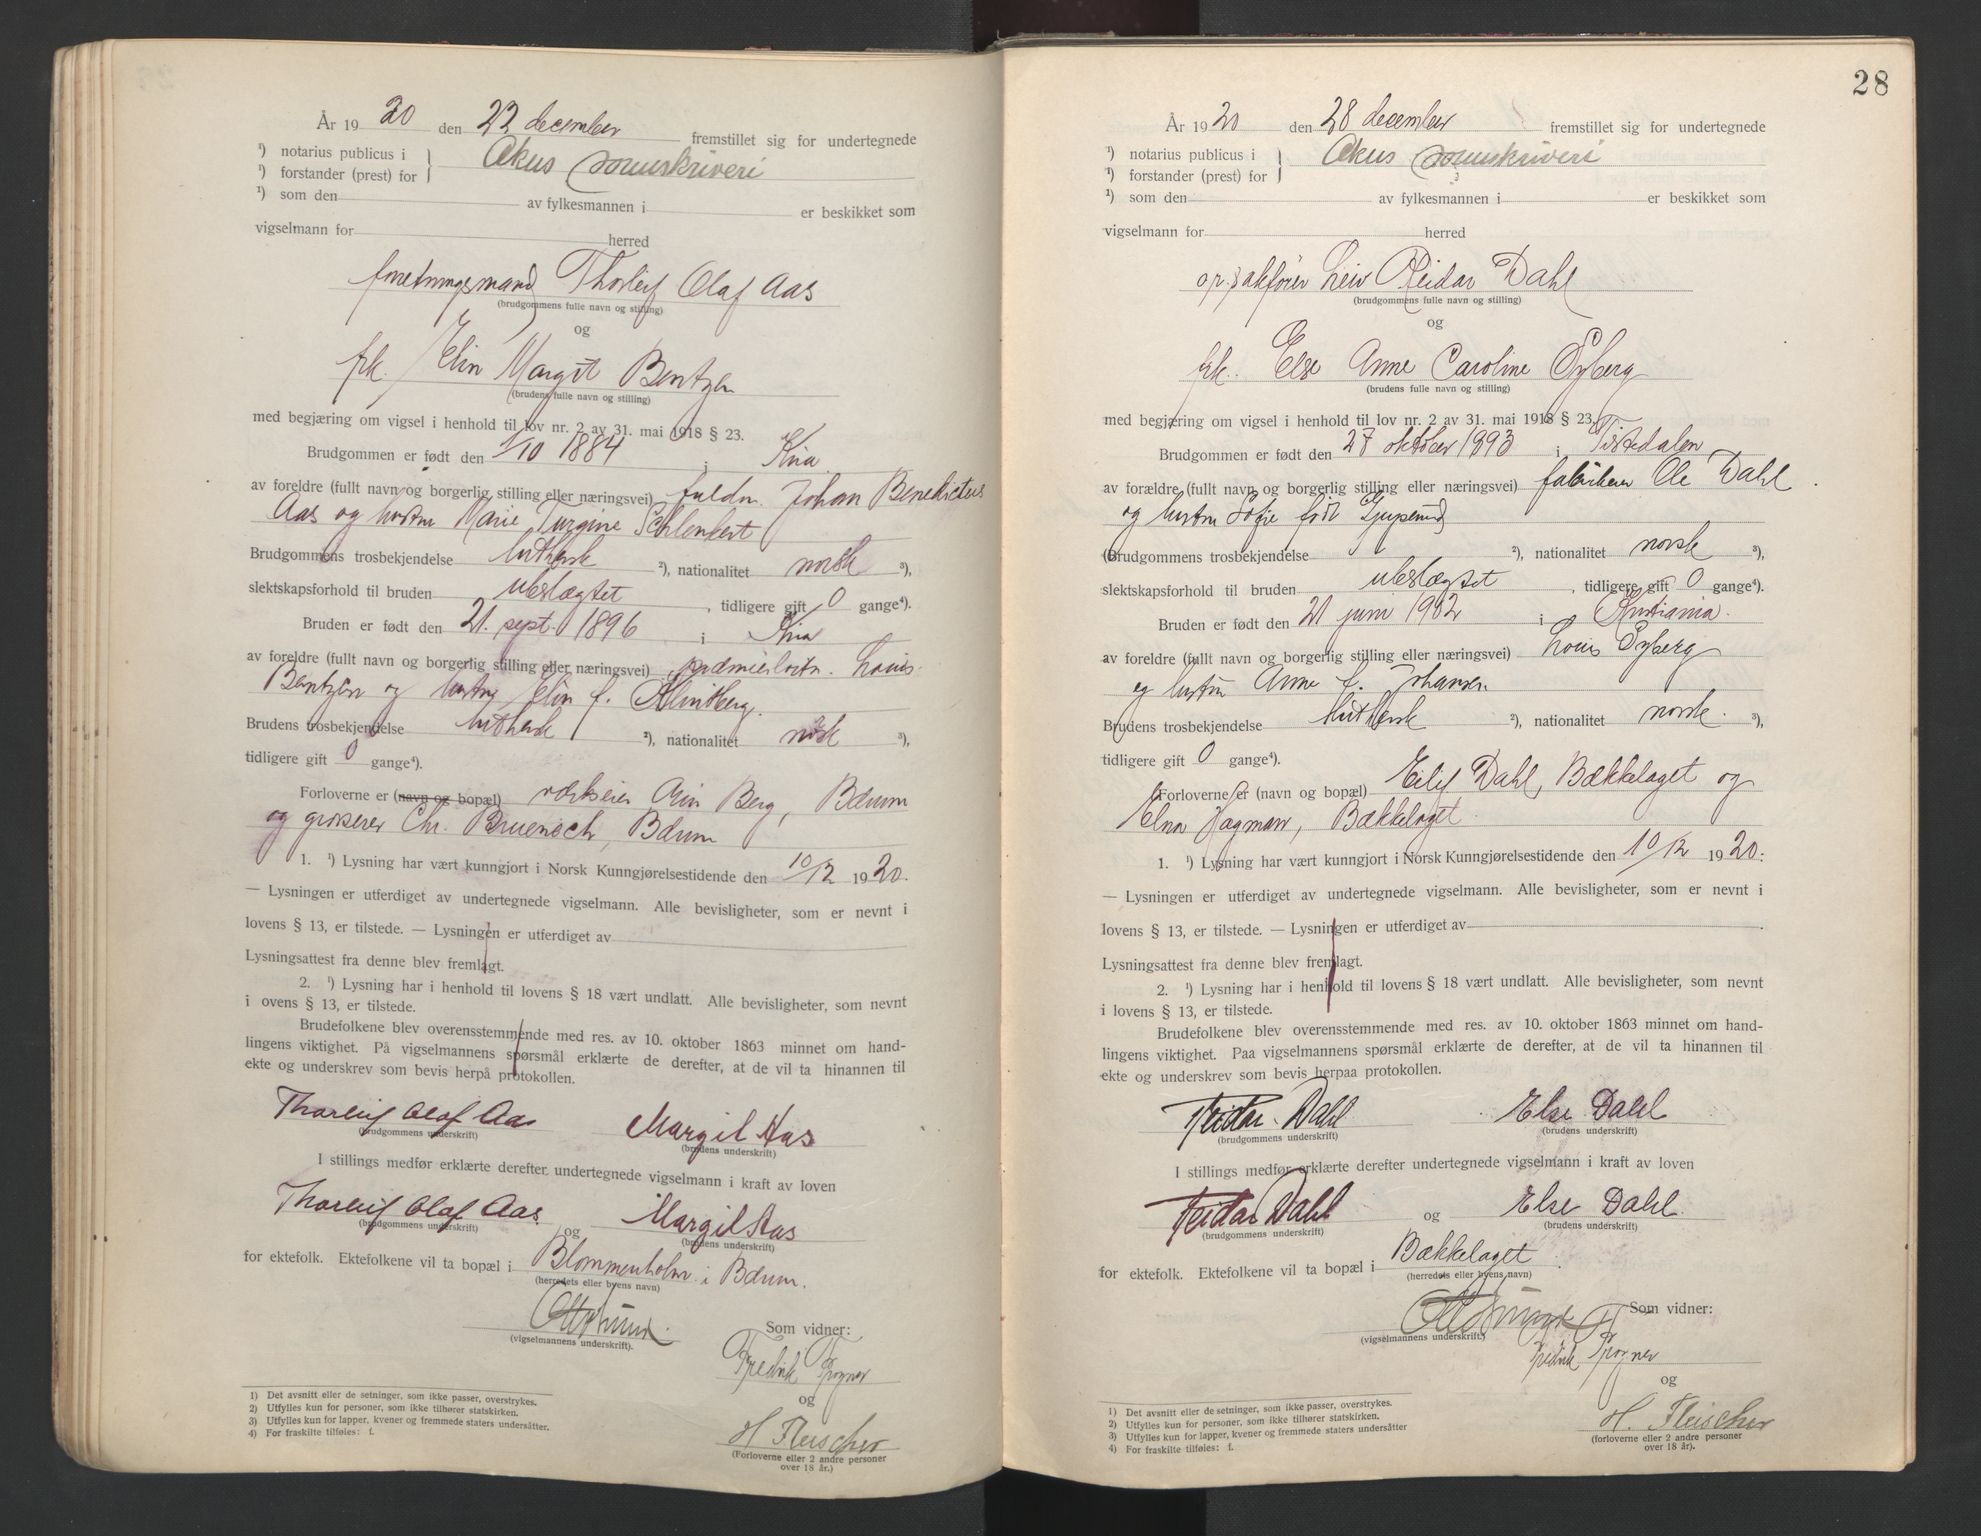 År 1920 den 22 december fremstillet sig for undertegnede
¹) notarius publicus i
¹) forstander (prest) for
Akers sorenskriveri
¹) som den av fylkesmannen i er beskikket som
vigselmann for herred
forretningsmand Thorleif Olaf Aas
(brudgommens fulle navn og stilling)
og
frk. Elin Margit Bentzen
(brudens fulle navn og stilling)
med begjæring om vigsel i henhold til lov nr. 2 av 31. mai 1918 § 23.
Brudgommen er født den 1/10 1884 i Kria
av foreldre (fullt navn og borgerlig stilling eller næringsvei) fuldm. Johan Benedictus
Aas og hustru Marie Turgine Schlenkert
Brudgommens trosbekjendelse luthersk ²), nationalitet norsk ³),
slektskapsforhold til bruden ubeslægtet, tidligere gift 0 gange⁴).
Bruden er født den 21. sept. 1896 i Kria
av foreldre (fullt navn og borgerlig stilling eller næringsvei) premierløitn. Louis
Bentzen og hustru Elin f. Klintberg.
Brudens trosbekjendelse luthersk ²), nationalitet norsk ³),
tidligere gift 0 gange⁴).
Forloverne er (navn og bopæl) verkseier Berg, Bærum
og grosserer Chr. Bruenech, Bærum
1. ¹) Lysning har vært kunngjort i Norsk Kunngjørelsestidende den 10/12 1920.
— Lysningen er utferdiget av undertegnede vigselmann. Alle bevisligheter, som er nevnt i
lovens § 13, er tilstede. — Lysningen er utferdiget av
Lysningsattest fra denne blev fremlagt.
2. ¹) Lysning har i henhold til lovens § 18 vært undlatt. Alle bevisligheter, som nevnt
i ovens § 13, er tilstede.
Brudefolkene blev overensstemmende med res. av 10. oktober 1863 minnet om hand-
lingens viktighet. På vigselmannens spørsmål erklærte de derefter, at de vil ta hinannen til
ekte og underskrev som bevis herpå protokollen.
Thorleif Olaf Aas Margit Aas
(brudgommens underskrift) (brudens underskrift)
I stillings medfør erklærte derefter undertegnede vigselmann i kraft av loven
Thorleif Olaf Aas og Margit Aas
(brudgommens underskrift) (brudens underskrift)
for ektefolk. Ektefolkene vil ta bopæl i Blommenholm i Bærum.
(herredets eller byens navn)
(vigselmannens underskrift).
Som vidner:
Fredrik Trogner
og
H. Fleischer
(Forloverne eller 2 andre personer
over 18 år.)
1) Det avsnitt eller de setninger, som ikke passer, overstrykes.
2) Utfylles kun for personer, som ikke tilhører statskirken.
3) Utfylles kun for lapper, kvener og fremmede staters undersåtter.
4) For fraskilte tilføies: f.
28
År 1920 den 28 december fremstillet sig for undertegnede
¹) notarius publicus i
¹) forstander (prest) for
Akers sorenskriveri
¹) som den av fylkesmannen i er beskikket som
vigselmann for herred
o.r.sakfører Leiv Reidar Dahl
(brudgommens fulle navn og stilling)
og
frk. Else Anne Caroline Syberg
(brudens fulle navn og stilling)
med begjæring om vigsel i henhold til lov nr. 2 av 31. mai 1918 § 23.
Brudgommen er født den 27 oktober 1893 i Tistedalen
av forældre (fullt navn og borgerlig stilling eller næringsvei) fabrikeier Ole Dahl
og hustru Sofie født
Brudgommens trosbekjendelse ²), nationalitet norsk ³),
slektskapsforhold til bruden ubeslægtet, tidligere gift 0 gange⁴).
Bruden er født den 21 juni 1902 i Kristiania.
av foreldre (fullt navn og borgerlig stilling eller næringsvei) Louis Syberg
og hustru Anne f. Johansen
Brudens trosbekjendelse luthersk ²), nationalitet norsk. ³),
tidligere gift 0 gange⁴).
Forloverne er (navn og bopæl) Eilif Dahl, Bækkelaget og
Elna Hagman, Bækkelaget.
1. ¹) Lysning har vært kunngjort i Norsk Kunngjørelsestidende den 10/12 1920:
— Lysningen er utferdiget av undertegnede vigselmann. Alle bevisligheter, som er nevnt i
lovens § 13, er tilstede. — Lysningen er utferdiget av
Lysningsattest fra denne blev fremlagt.
2. ¹) Lysning har i henhold til lovens § 18 vært undlatt. Alle bevisligheter, som nevnt
i lovens § 13, er tilstede.
Brudefolkene blev overensstemmende med res. av 10. oktober 1863 minnet om hand-
lingens viktighet. Paa vigselmannens spørsmål erklærte de derefter, at de vil ta hinannen til
ekte og underskrev som bevis herpaa protokollen.
Reidar Dahl Else Dahl
(brudgommens underskrift) (brudens underskrift)
I stillings medfør erklærte derefter undertegnede vigselmann i kraft av loven
Reidar Dahl og Else Dahl.
(brudgommens underskrift) (brudens underskrift)
for ektefolk. Ektefolkene vil ta bopæl i Bækkelaget.
(herredets eller byens navn)
(vigselmannens underskrift.)
Som vidner:
Fredrik Trogner
og
H. Fleischer
(forloverne eller 2 andre personer
over 18 år).
1) Det avsnitt eller de setninger, som ikke passer, overstrykes.
2) Utfylles kun for personer, som ikke tilhører statskirken.
3) Utfylles kun for lapper, kvener og fremmede staters undersåtter
4) For fraskilte tilføies: f.